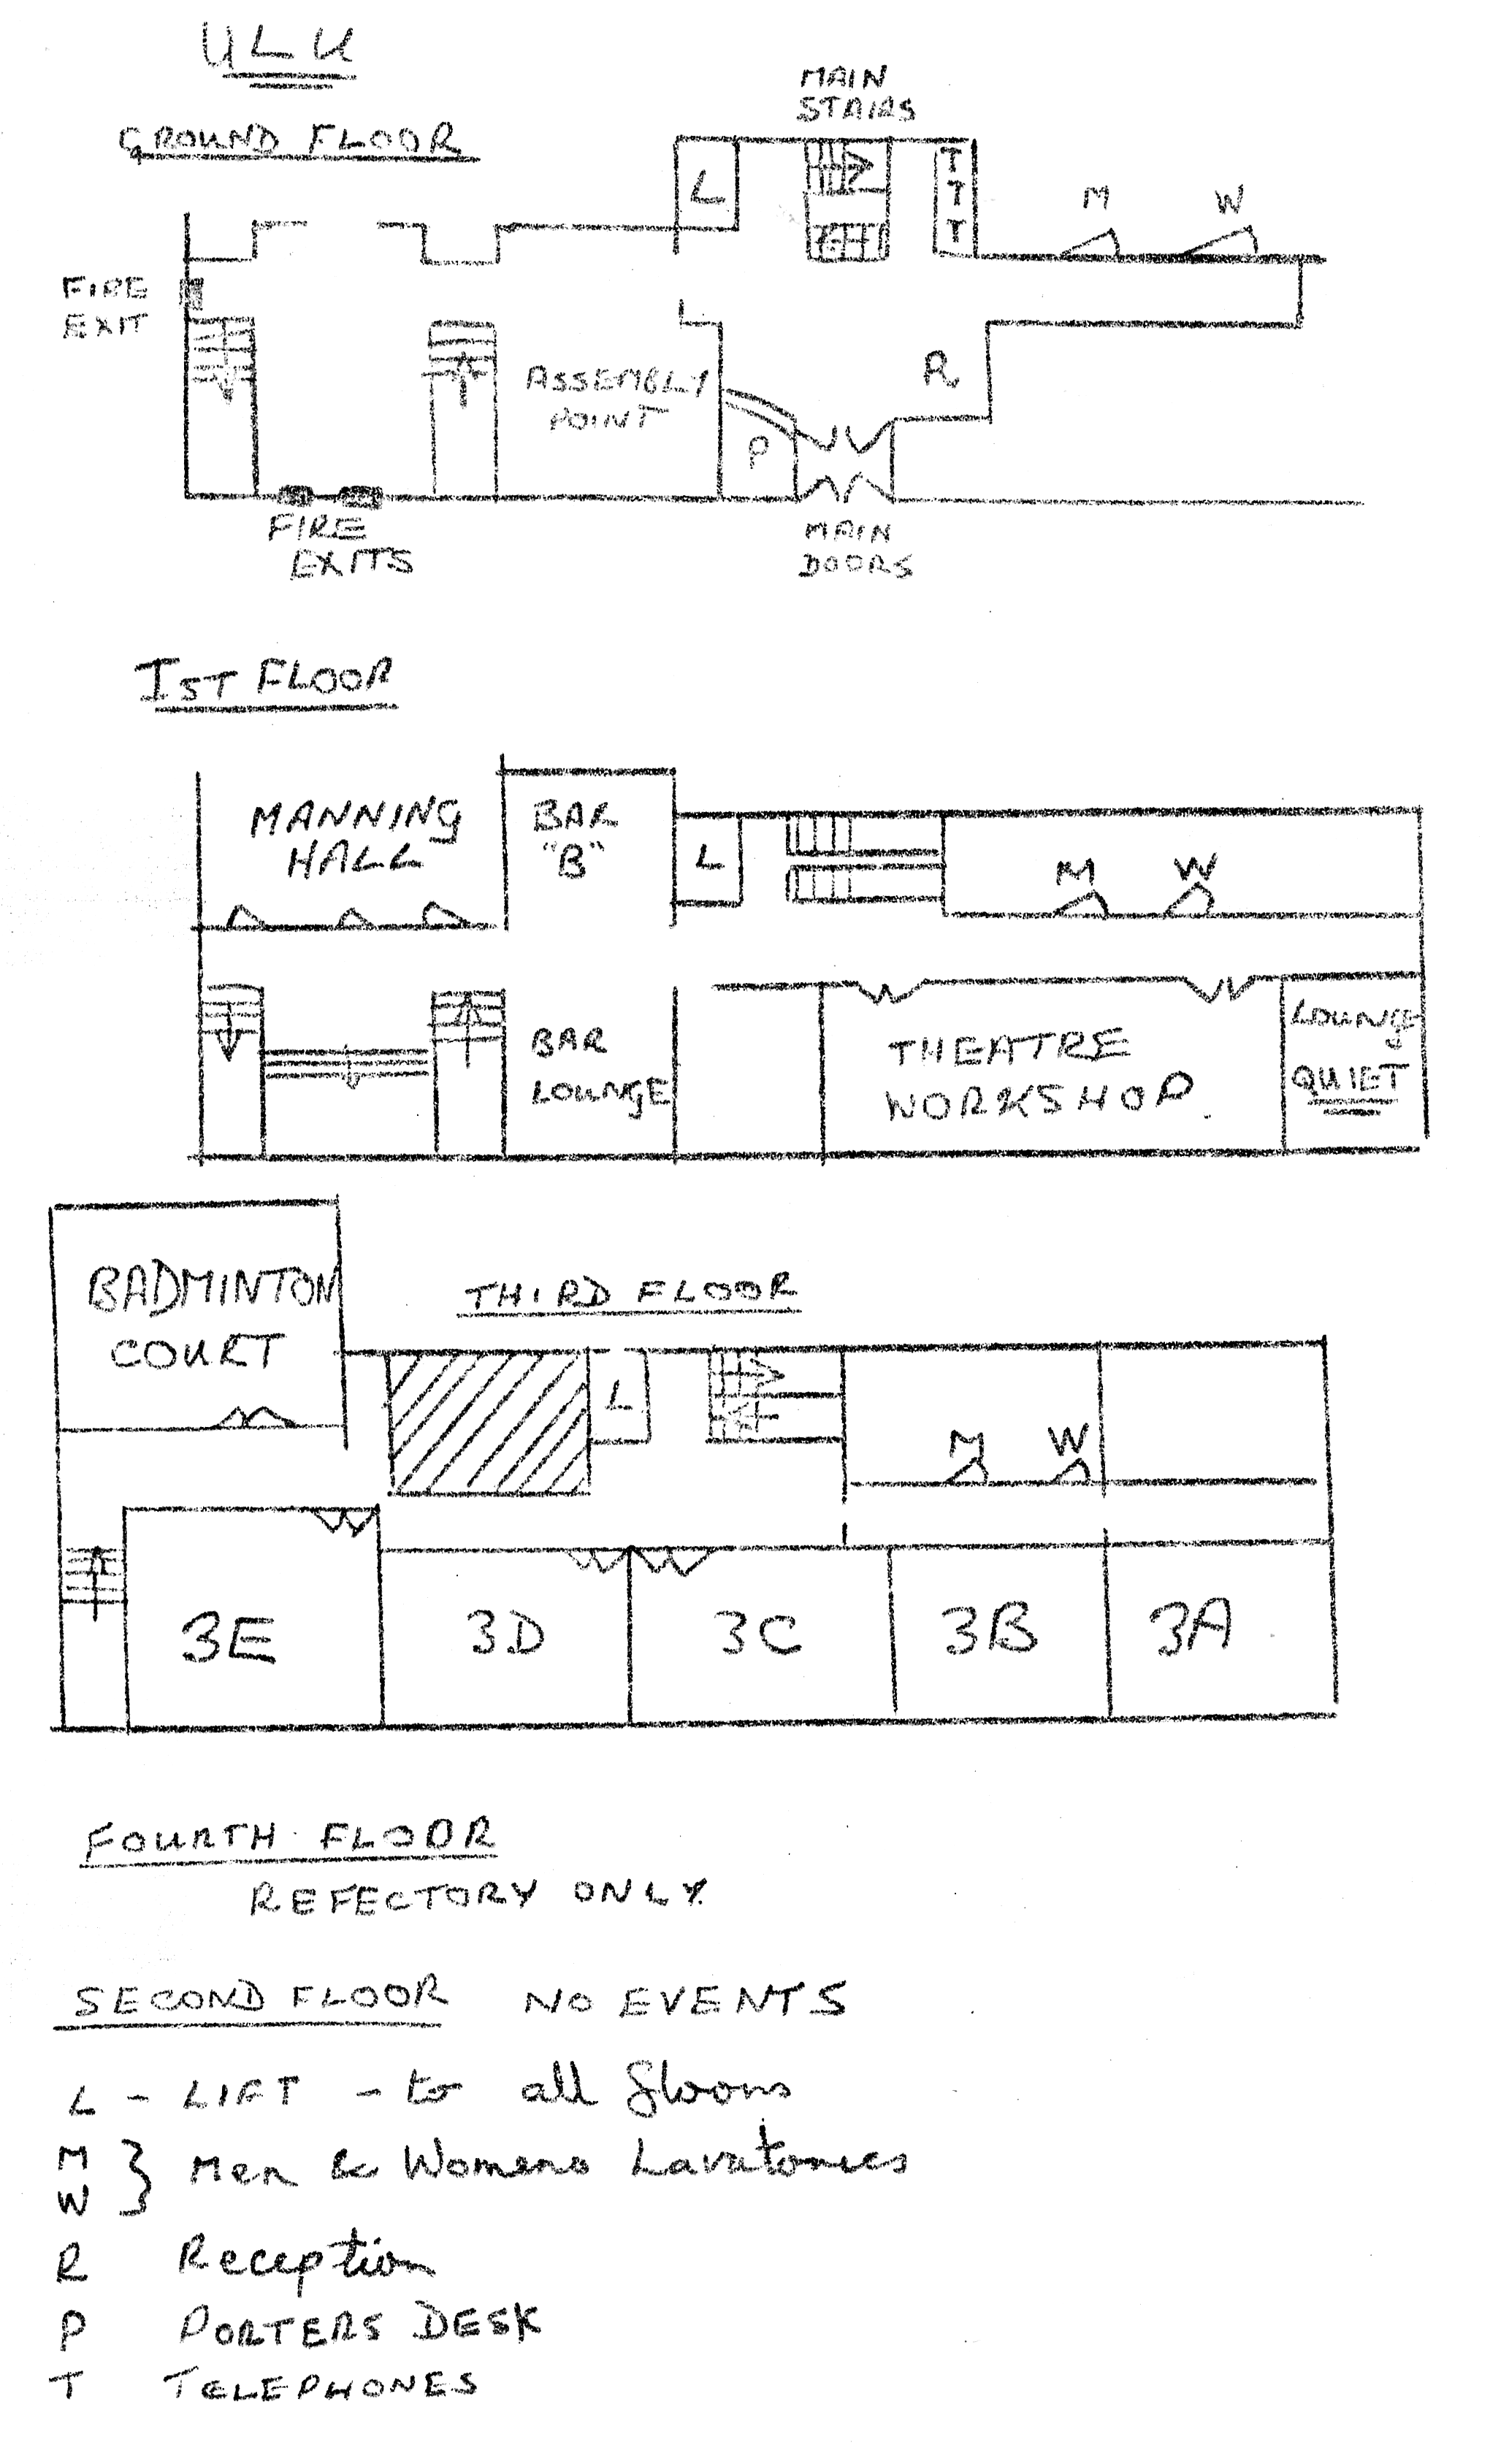 ULU
GROUND FLOOR
MAIN
STAIRS
L
T
T
T
M
W
FIRE
EXIT
ASSEMBLY
POINT
R
P
FIRE
EXITS
MAIN
DOORS
IST FLOOR
MANNING
HALL
BAR
"B"
L
M
W
BAR
LOUNGE
THEATRE
WORKSHOP.
LOUNGE
QUIET
BADMINTON
COURT
THIRD FLOOR
L
M
W
3E
3D
3C
3B
3A
FOURTH FLOOR
REFECTORY ONLY
SECOND FLOOR NO EVENTS
L - LIFT - to all floors
M
W } Men & Womens Lavatories
R Reception
P PORTERS DESK
T TELEPHONES